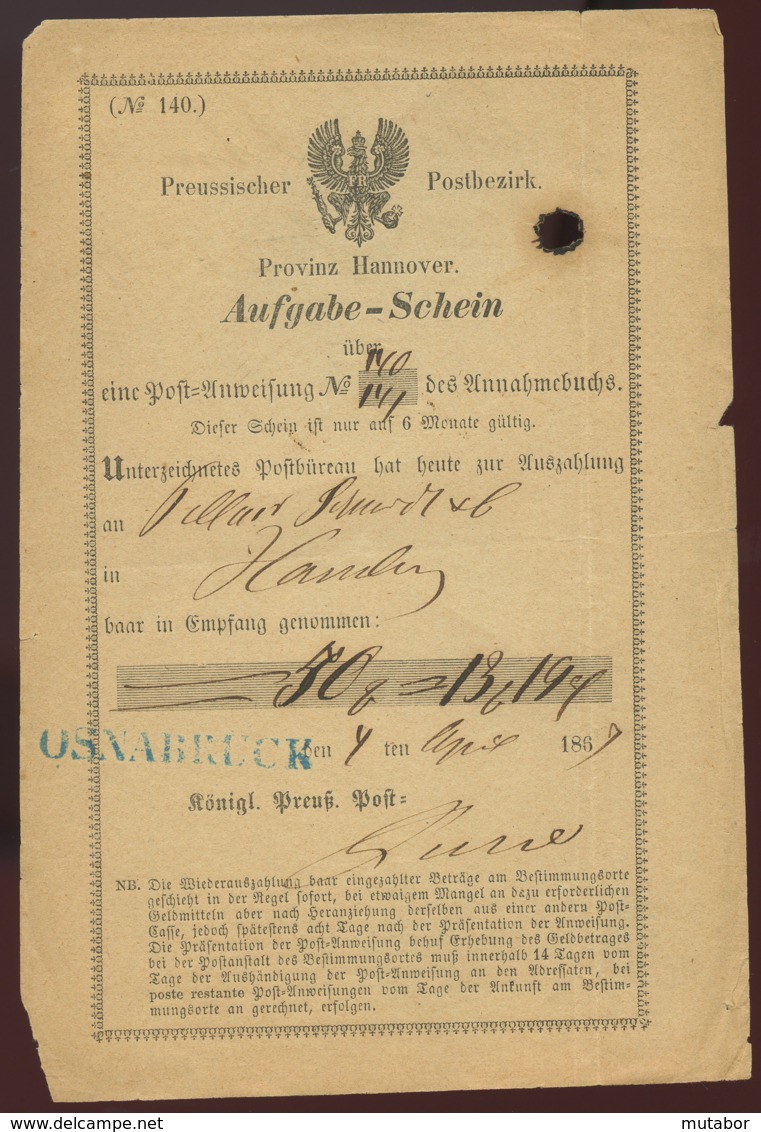 (№ 140.)
Preussischer Postbezirk.
FR
Provinz Hannover.
Aufgabe-Schein
über
140
eine Post-Anweisung № 141 des Annahmebuchs.
Dieser Schein ist nur auf 6 Monate gültig.
Unterzeichnetes Postbüreau hat heute zur Auszahlung
an
in
baar in Empfang genommen:
50
OSNABRUCK den 4 ten April 1867
Königl. Preuß. Post-
NB. Die Wiederauszahlung baar eingezahlter Beträge am Bestimmungsorte
geschieht in der Regel sofort, bei etwaigem Mangel an dazu erforderlichen
Geldmitteln aber nach Heranziehung derselben aus einer andern Post-
Casse, jedoch spätestens acht Tage nach der Präsentation der Anweisung.
Die Präsentation der Post-Anweisung behuf Erhebung des Geldbetrages
bei der Postanstalt des Bestimmungsortes muß innerhalb 14 Tagen vom
Tage der Aushändigung der Post-Anweisung an den Adressaten, bei
poste restante Post-Anweisungen vom Tage der Ankunft am Bestim-
mungsorte an gerechnet, erfolgen.
www.delcampe.net
mutabor